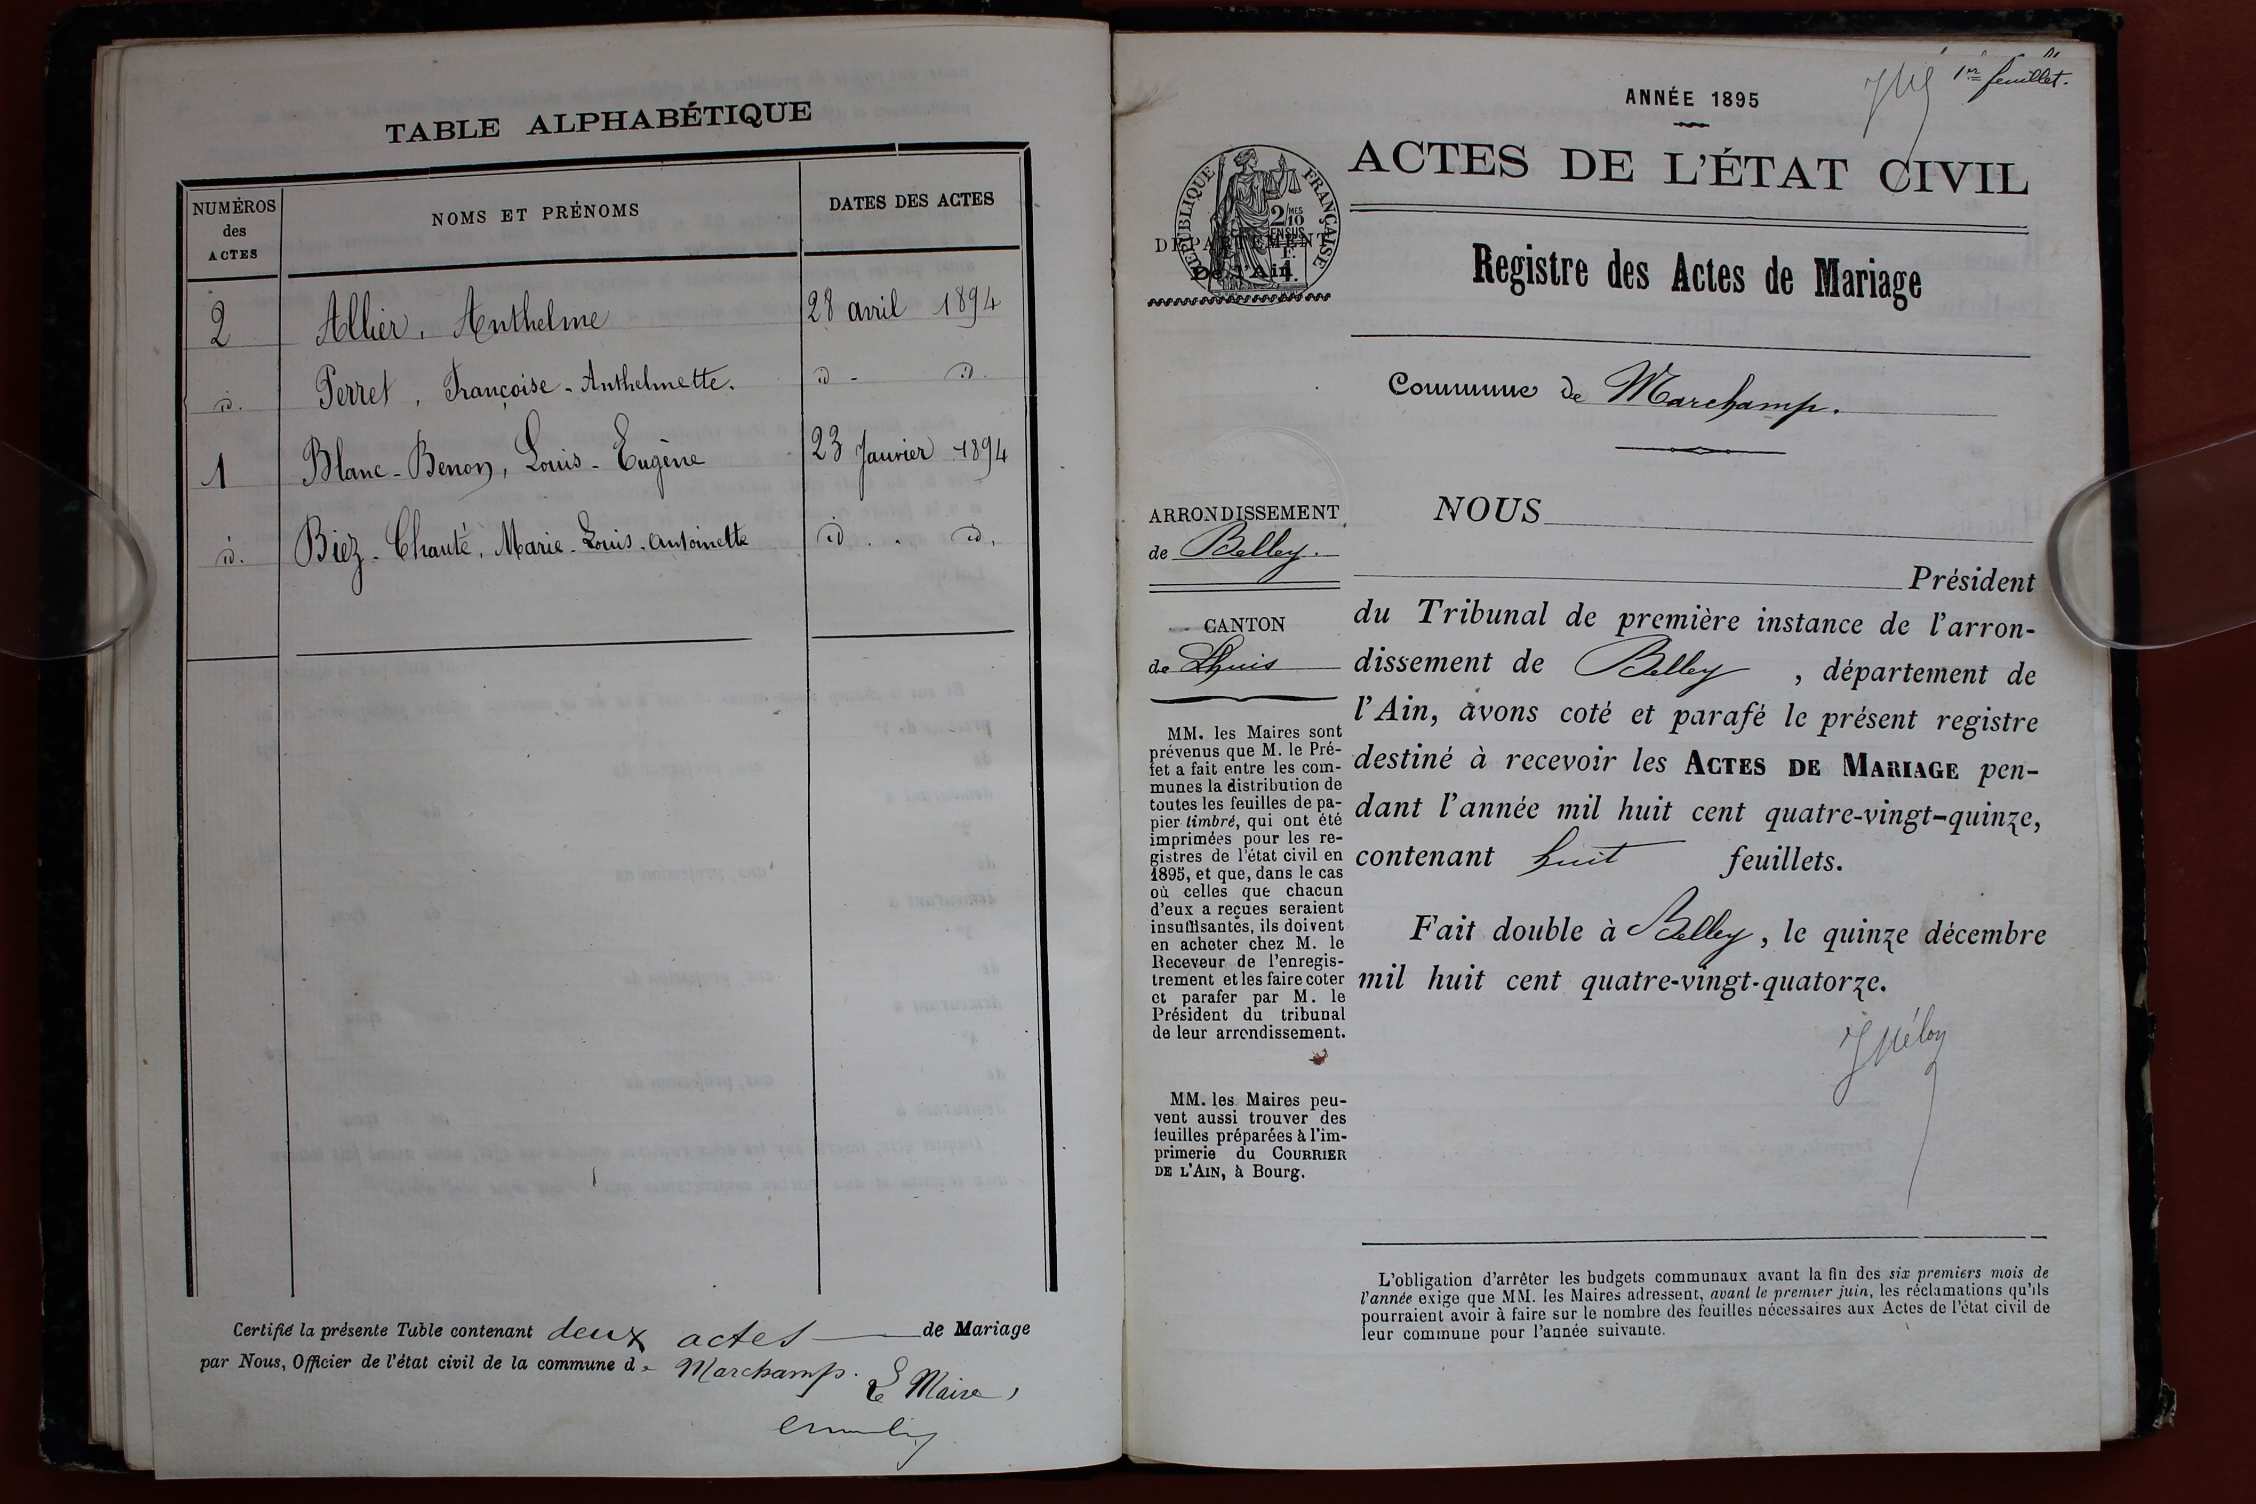 TABLE ALPHABÉTIQUE
NUMÉROS des ACTES
NOMS ET PRÉNOMS
DATES DES ACTES
2 Allier, Anthelme 28 avril 1894
id. Perret, Françoise-Anthelmette. id - id.
1 Blanc-Benon, Louis-Eugène 23 Janvier 1894
id. Biez-Chauté, Marie-Louis-Antoinette id . . id.
Certifié la présente Table contenant deux actes de Mariage
par Nous, Officier de l'état civil de la commune de Marchamp.
Le Maire,
1er feuillet.
ANNÉE 1895
ACTES DE L'ÉTAT CIVIL
RÉPUBLIQUE FRANÇAISE
2/10 MES
EN SUS
DÉPARTEMENT
De l'Ain
Registre des Actes de Mariage
Commune de Marchamp.
ARRONDISSEMENT
de Belley.
CANTON
de Lhuis
MM. les Maires sont
prévenus que M. le Pré-
fet a fait entre les com-
munes la distribution de
toutes les feuilles de pa-
pier timbré, qui ont été
imprimées pour les re-
gistres de l'état civil en
1895, et que, dans le cas
où celles que chacun
d'eux a reçues seraient
insuffisantes, ils doivent
en acheter chez M. le
Receveur de l'enregis-
trement et les faire coter
et parafer par M. le
Président du tribunal
de leur arrondissement.
MM. les Maires peu-
vent aussi trouver des
feuilles préparées à l'im-
primerie du COURRIER
DE L'AIN, à Bourg.
NOUS
Président
du Tribunal de première instance de l'arron-
dissement de Belley, département de
l'Ain, avons coté et parafé le présent registre
destiné à recevoir les ACTES DE MARIAGE pen-
dant l'année mil huit cent quatre-vingt-quinze,
contenant huit feuillets.
Fait double à Belley, le quinze décembre
mil huit cent quatre-vingt-quatorze.
L'obligation d'arrêter les budgets communaux avant la fin des six premiers mois de
l'année exige que MM. les Maires adressent, avant le premier juin, les réclamations qu'ils
pourraient avoir à faire sur le nombre des feuilles nécessaires aux Actes de l'état civil de
leur commune pour l'année suivante.